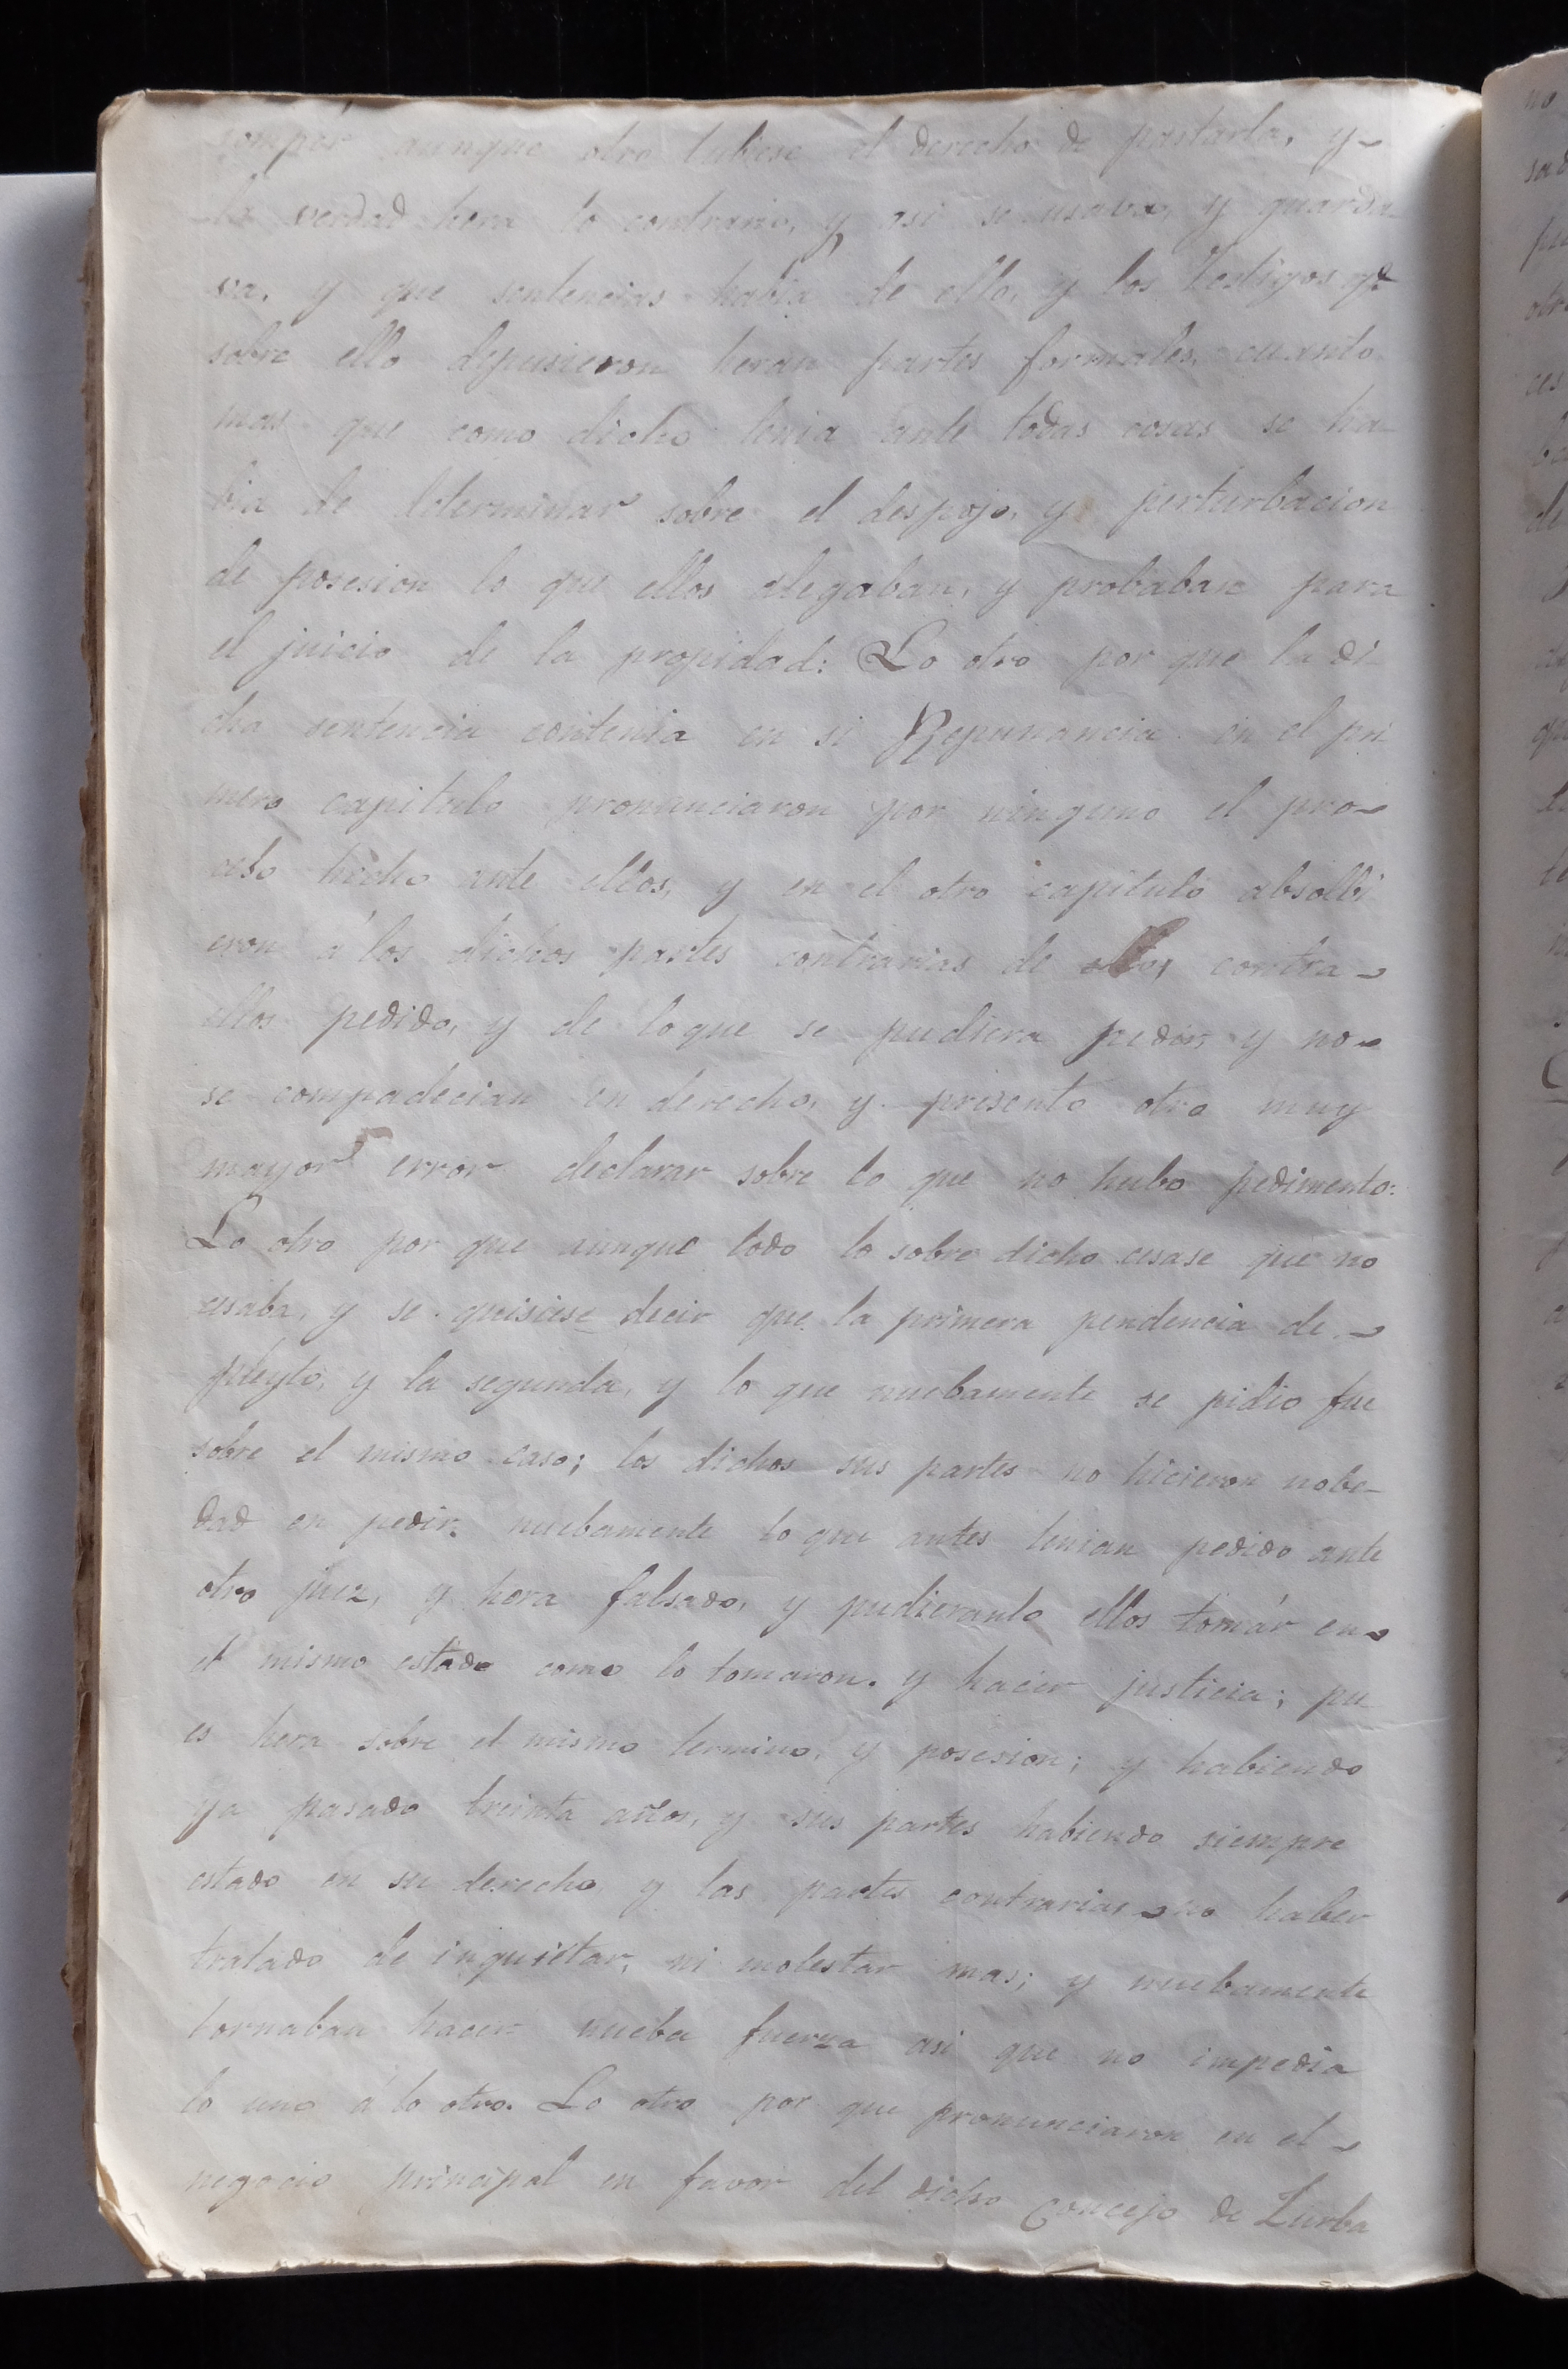 rompér aunque otro tubiese el derecho de pastarla, y
la verdad hera lo contrario, y asi se usava, y guarda-
va, y que sentencias habia de ello, y los Testigos qe
sobre ello depusieron heran partes formales, cuanto
mas que como dicho tenia ante todas cosas se ha-
bia de determinar sobre el despojo, y perturbacion
de posesion lo que ellos alegaban, y probaban para
el juicio de la propidad: Lo otro por que la di-
cha sentencia contenia en si Repunancia en el pri
mero capitulo pronunciaron por ninguno el pro-
ceso hecho ante ellos, y en el otro capitulo absolbi
eron á los dichos partes contrarias de contra-
ellos pedido, y de lo que se pudiera pedir, y no-
se compadecian en derecho, y presento otro muy
mayor error declarar sobre lo que no hubo pedimento:
Lo otro por que aunque todo lo sobre dicho cesase que no
cesaba, y se quisiese decir que la primera pendencia de
pleyto, y la segunda, y lo que nuebamente se pidio fue
sobre el mismo caso; los dichos sus partes no hicieron nobe-
dad en pedir nuebamente lo que antes tenian pedido ante
otro juez, y hera falsado, y pudieranlo ellos tomár en
el mismo estado como lo tomaron. y hacer justicia; pu
es hera sobre el mismo termino, y posesion; y habiendo
ya pasado treinta años, y sus partes habiendo siempre
estado en su derecho y las partes contrarias no haber
tratado de inquietar, ni molestar mas; y nuebamente
tornaban hacer nueba fuerza asi que no impedia
lo uno á lo otro. Lo otro por que pronunciaron en el
negocio principal en favor del dicho Concejo de Zurba